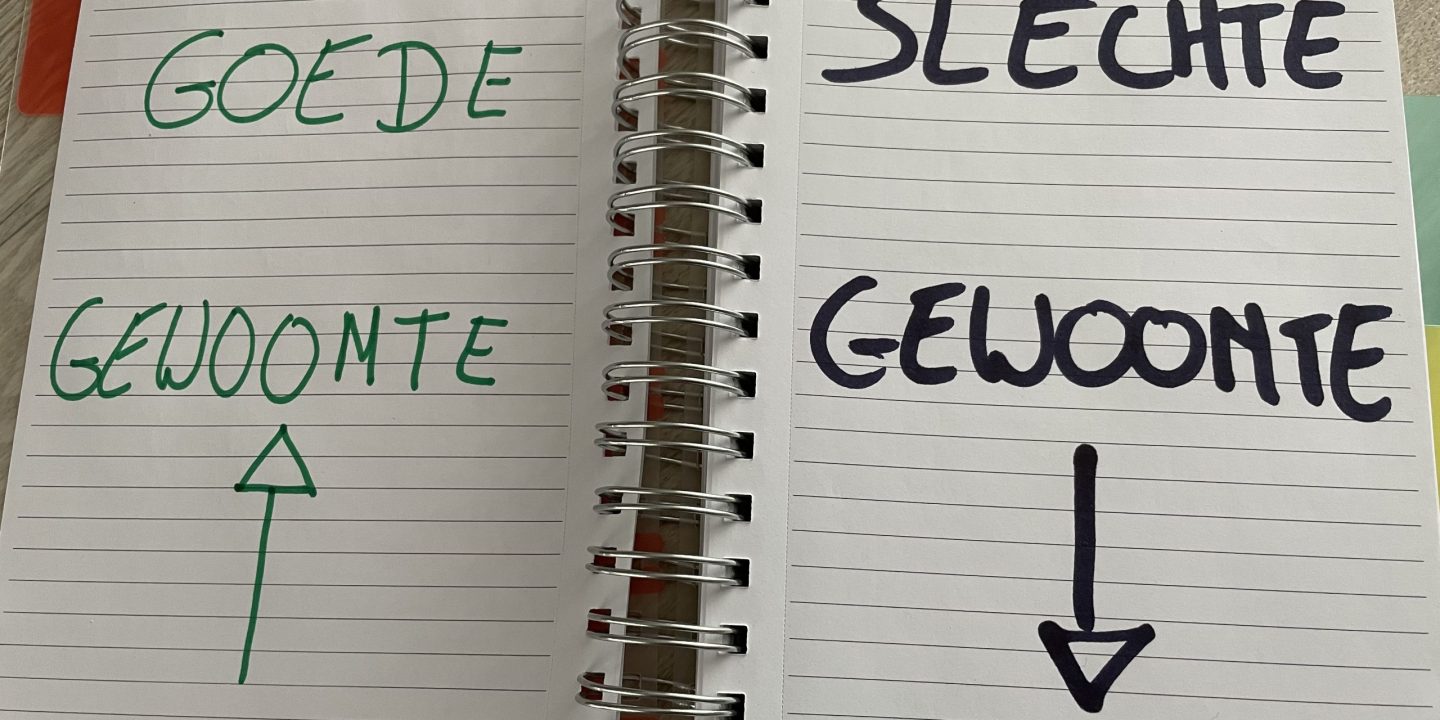 GOEDE
GEWOONTE
SLECHTE
GEWOONTE